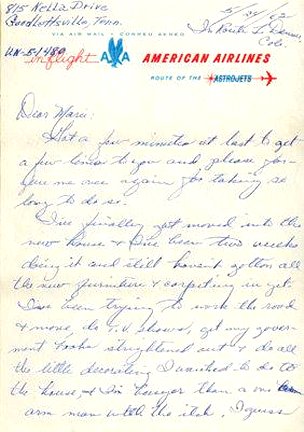 815 Nella Drive
Goodlettsville, Tenn.
5/24/62
In Route To Denver,
Colo.
UN-5-1480
VIA AIR MAIL • CORREO AEREO
in flight AA AMERICAN AIRLINES
ROUTE OF THE ASTROJETS
Dear Marie:
Got a few minutes at last to get
a few lines to you and please for-
give me once again for taking so
long to do so.
I've finally got moved into the
new house & I've been two weeks
doing it and still haven't gotten all
the new furniture & carpeting in yet.
I've been trying to work the road
& move, do T.V. shows, get my govern-
ment books straightened out & do all
the little decorating I wanted to do to
the house, & I'm busyer than a one
arm man with the itch. I guess